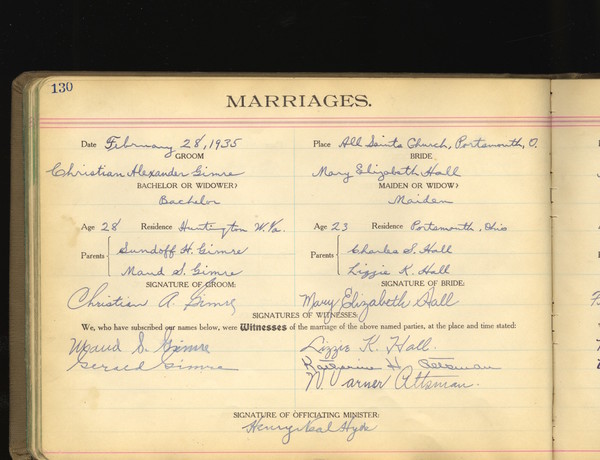 130
MARRIAGES.
Date February 28, 1935 Place All Saints Church, Portsmouth, O.
GROOM BRIDE
Christian Alexander Gimre Mary Elizabeth Hall
BACHELOR OR WIDOWER? MAIDEN OR WIDOW?
Bachelor Maiden
Age 28 Residence Huntington W. Va. Age 23 Residence Portsmouth, Ohio
Parents Sundoff H. Gimre Parents Charles S. Hall
Maud S. Gimre Lizzie K. Hall
SIGNATURE OF GROOM: SIGNATURE OF BRIDE:
Christian A. Gimre Mary Elizabeth Hall
SIGNATURES OF WITNESSES:
We, who have subscribed our names below, were Witnesses of the marriage of the above named parties, at the place and time stated:
Maud S. Gimre Lizzie K. Hall.
Gerald Gimre Katherine H.
Warner Attsman.
SIGNATURE OF OFFICIATING MINISTER:
Henry Neal Hyde